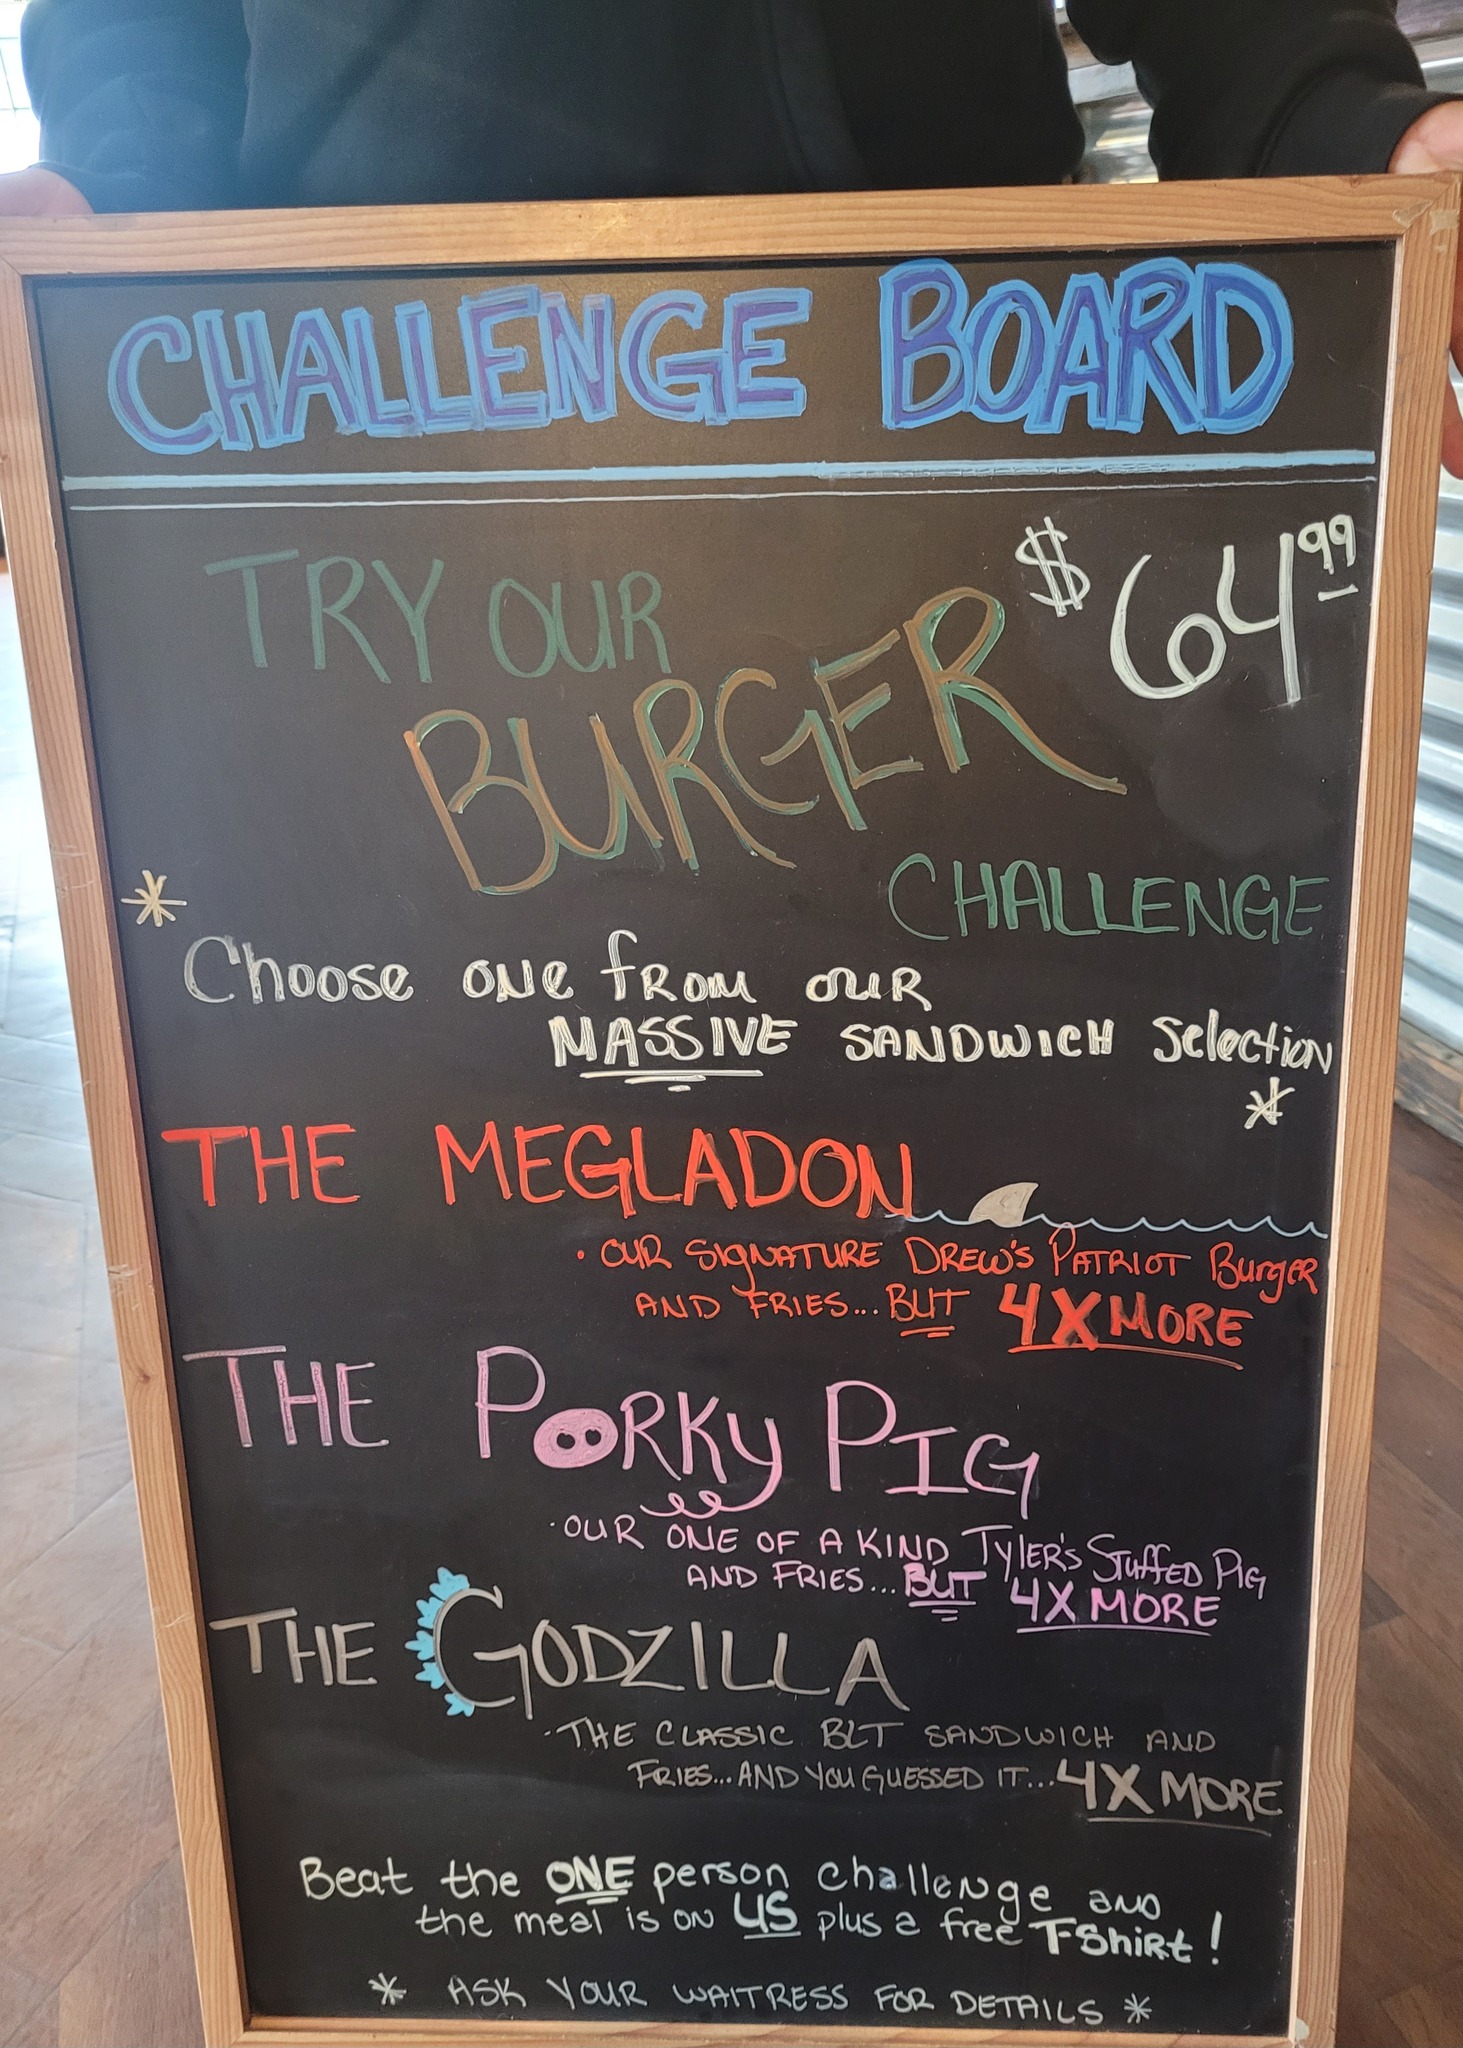 CHALLENGE BOARD
TRY OUR
$64.99
BURGER
CHALLENGE
* Choose ONe fROM OUR
MASSIVE SANDWICH Selection *
THE MEGLADON
• OUR SIGNATURE DREW'S PATRIOT Burger
AND FRIES... BUT 4X MORE
THE PORKY PIG
• OUR ONE OF A KIND TYLER'S STUFFED PIG
AND FRIES... BUT 4X MORE
THE GODZILLA
• THE CLASSIC BLT SANDWICH AND
FRIES... AND YOU GUESSED IT... 4X MORE
Beat the ONE person challenge AND
the meal is ON US plus a free T-ShiRt!
* ASK YOUR WAITRESS FOR DETAILS *